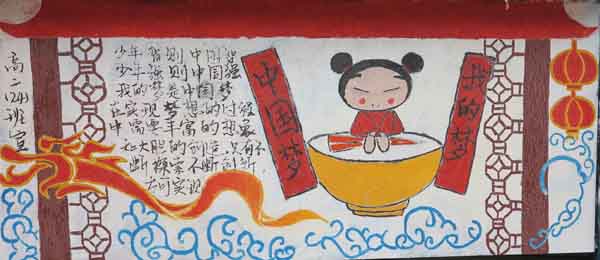 高二
班宣
少年智则中国智
少年强则中国强
我的梦则中国梦
在实现梦想的过程
中需要丰富的想
大胆的创造，只有不
断探索不断创新，
方可实现
中国梦
我的梦